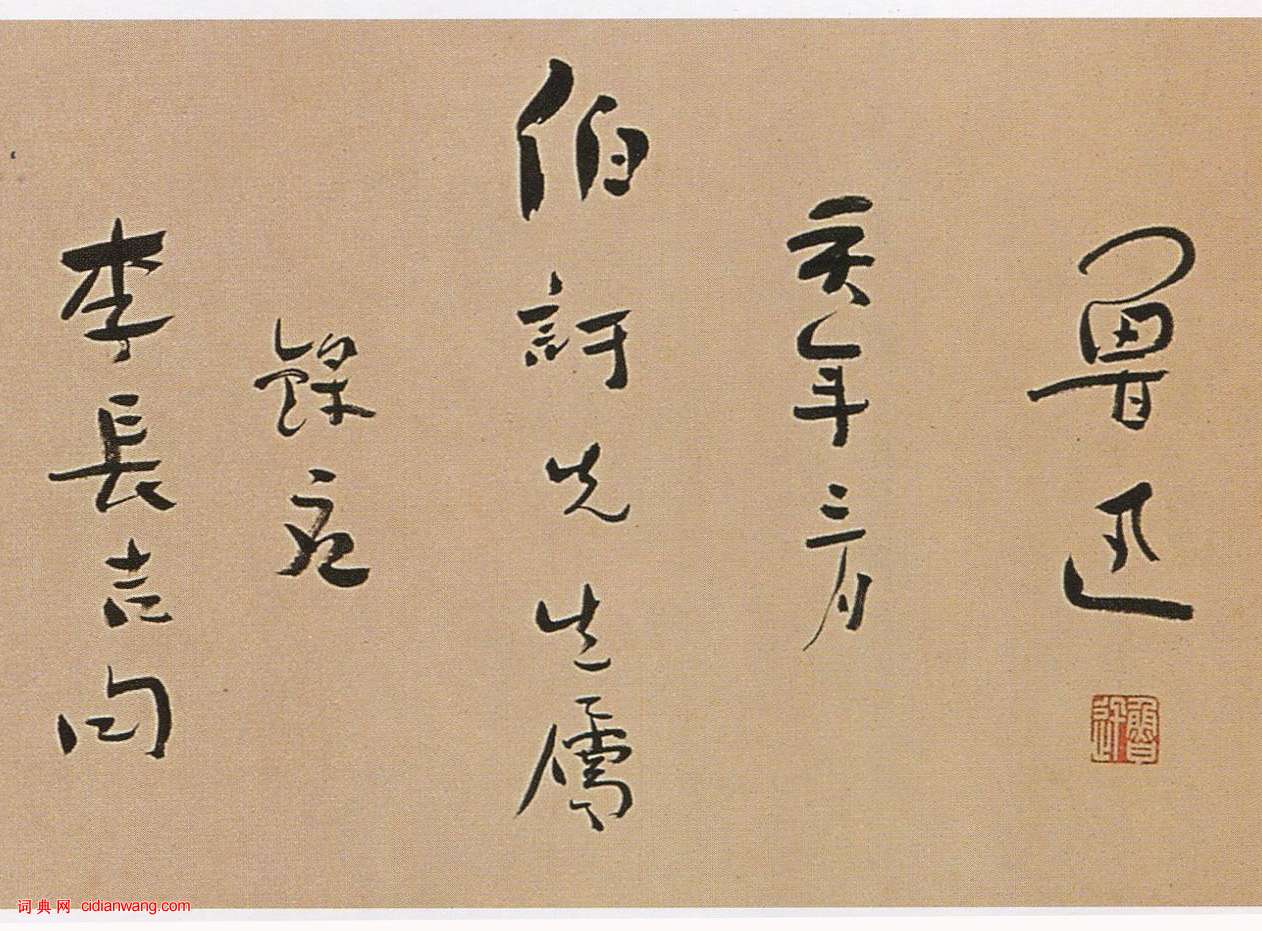 李長吉句
錄應
伯訏先生屬
亥年三月
魯迅
魯迅
词典网 cidianwang.com